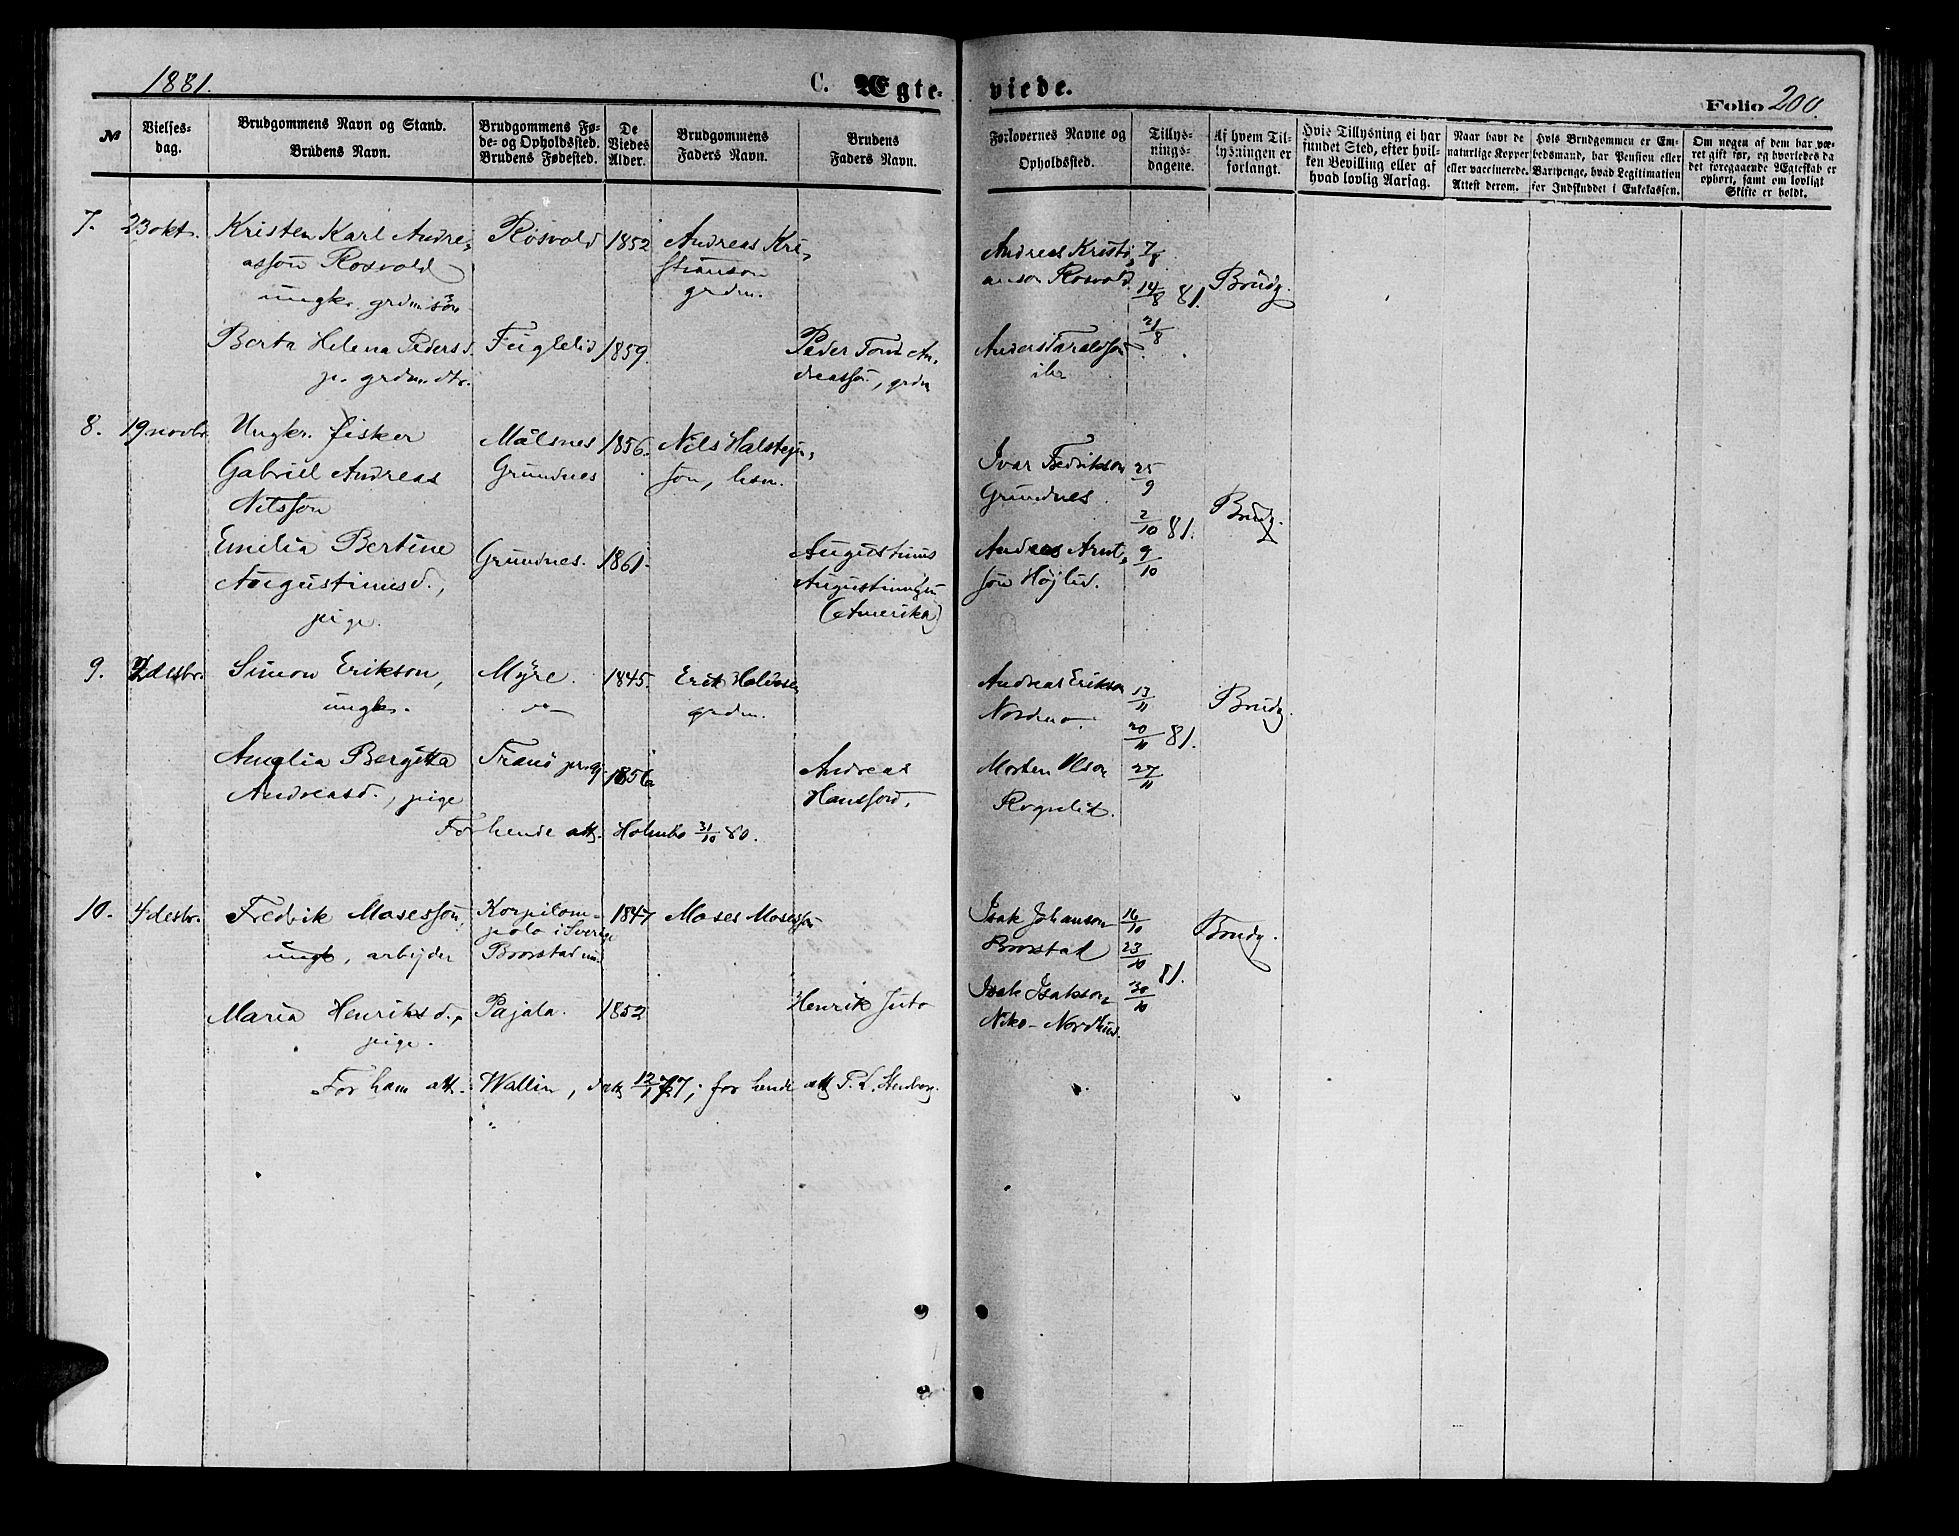 1881.
C. Ægte-
viede.
Folio 200.
№
Vielses-
dag.
Brudgommens Navn og Stand.
Brudens Navn.
Brudgommens Fø-
de- og Opholdssted.
Brudens Fødested.
De
Viedes
Alder.
Brudgommens
Faders Navn.
Brudens
Faders Navn.
Forlovernes Navne og
Opholdssted.
Tillys-
nings-
dagene.
Af hvem Til-
lysningen er
forlangt.
Hvis Tillysning ei har
fundet Sted, efter hvil-
ken Bevilling eller af
hvad lovlig Aarsag.
Naar havt de
naturlige Kopper
eller vaccinerede.
Attest derom.
Hvis Brudgommen er Em-
bedsmand, har Pension eller
Vartpenge, hvad Legitimation
for Indskuddet i Enkekassen.
Om nogen af dem har væ-
ret gift før, og hvorledes da
det foregaaende Ægteskab er
ophørt, samt om lovligt
Skifte er holdt.
7. 23 okt. Kristen Karl Andre-
assøn Rosvold
ungkr. grdm. søn
Røsvold 1852 Andreas Kri-
stianson
grdm.
Andreas Kristi-
anson Rosvold
7/8
14/8 81.
21/8
Brudg.
Berta Helena Pedersd.
p. grdm. dtr.
Fuglelid 1859.
Peder Tom An-
dreassøn, grdm
Anders Taraldsøn
ibr
8. 19 novbr. Ungkr. fisker
Gabriel Andreas
Nilssøn
Målsnes
Grundnes
1856. Nils Halstein-
søn, hsm.
Ivar Fredrikson
Grundnes
25/9
2/10 81.
9/10
Brudg.
Emilia Bertine
Augustinusd.,
pige.
Grundnes. 1861.
Augustinus
Augustinussøn
(Amerika)
Andreas Arnt-
søn Højlid.
9. 2 desbr. Simon Erikson,
ungkr.
Myre. 1845. Erik Halvorsen
grdm.
Andreas Erikson
Nordmo.
13/11
20/11 81.
27/11
Brudg.
Amalia Bergitta
Andreasd., pige
Tranø prg. 1856
Andreas
Hanssøn.
Morten Olson
Rognlid.
For hende att. Holmbo 31/10 80.
10. 4 desbr. Fredrik Mosessøn,
ungk, arbejder
Korpilom-
polo i Sverige
1847 Moses Mosessøn
Isak Johanson
16/10
23/10 81.
30/10
Brudg.
Maria Henriksd.,
pige.
Pajala. 1852
Henrik Juto
Isak Isakson
Niko-Nordhus.
For ham att. Wallin, 77; for hende att